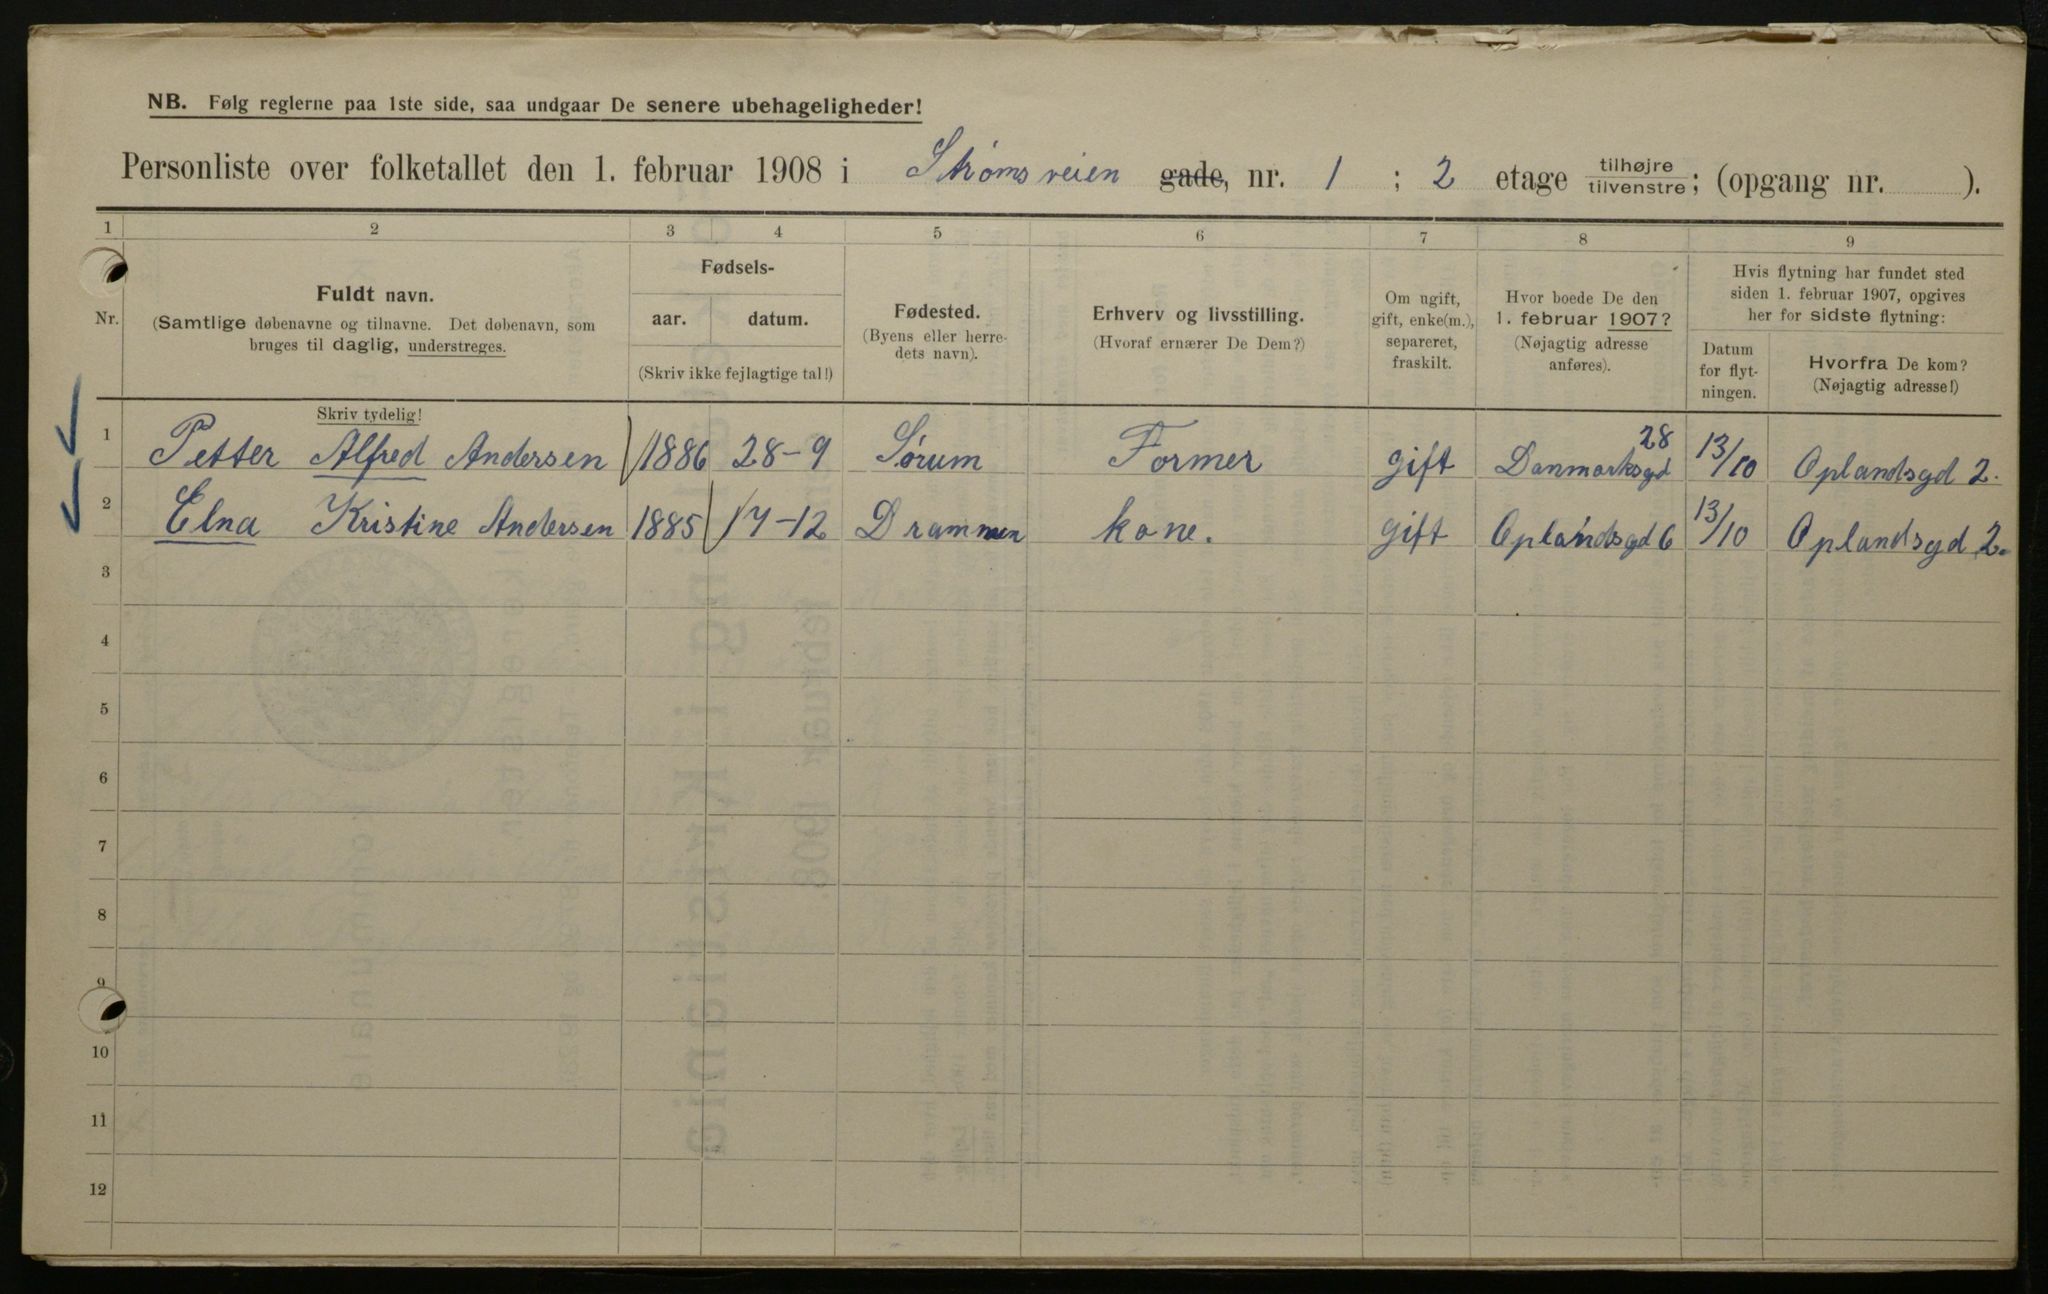 NB. Følg reglerne paa 1ste side, saa undgaar De senere ubehageligheder!
Personliste over folketallet den 1. februar 1908 i Strømsveien gade, nr. 1 ; 2 etage tilhøjre tilvenstre; (opgang nr. ).
1 2 3 4 5 6 7 8 9
Nr.
Fuldt navn.
(Samtlige døbenavne og tilnavne. Det døbenavn, som
bruges til daglig, understreges.
Skriv tydelig!
Fødsels-
aar. datum.
(Skriv ikke fejlagtige tal!)
Fødested.
(Byens eller herre-
dets navn).
Erhverv og livsstilling.
(Hvoraf ernærer De Dem?)
Om ugift,
gift, enke(m.),
separeret,
fraskilt.
Hvor boede De den
1. februar 1907?
(Nøjagtig adresse
anføres).
Hvis flytning har fundet sted
siden 1. februar 1907, opgives
her for sidste flytning:
Datum
for flyt-
ningen.
Hvorfra De kom?
(Nøjagtig adresse!)
1 Petter Alfred Andersen 1886 28-9 Sørum Former gift Danmarksgd 28 13/10 Oplandsgd 2.
2 Elna Kristine Andersen 1885 17-12 Drammen kone. gift Oplandsgd 6 13/10 Oplandsgd 2.
3
4
5
6
7
8
9
10
11
12